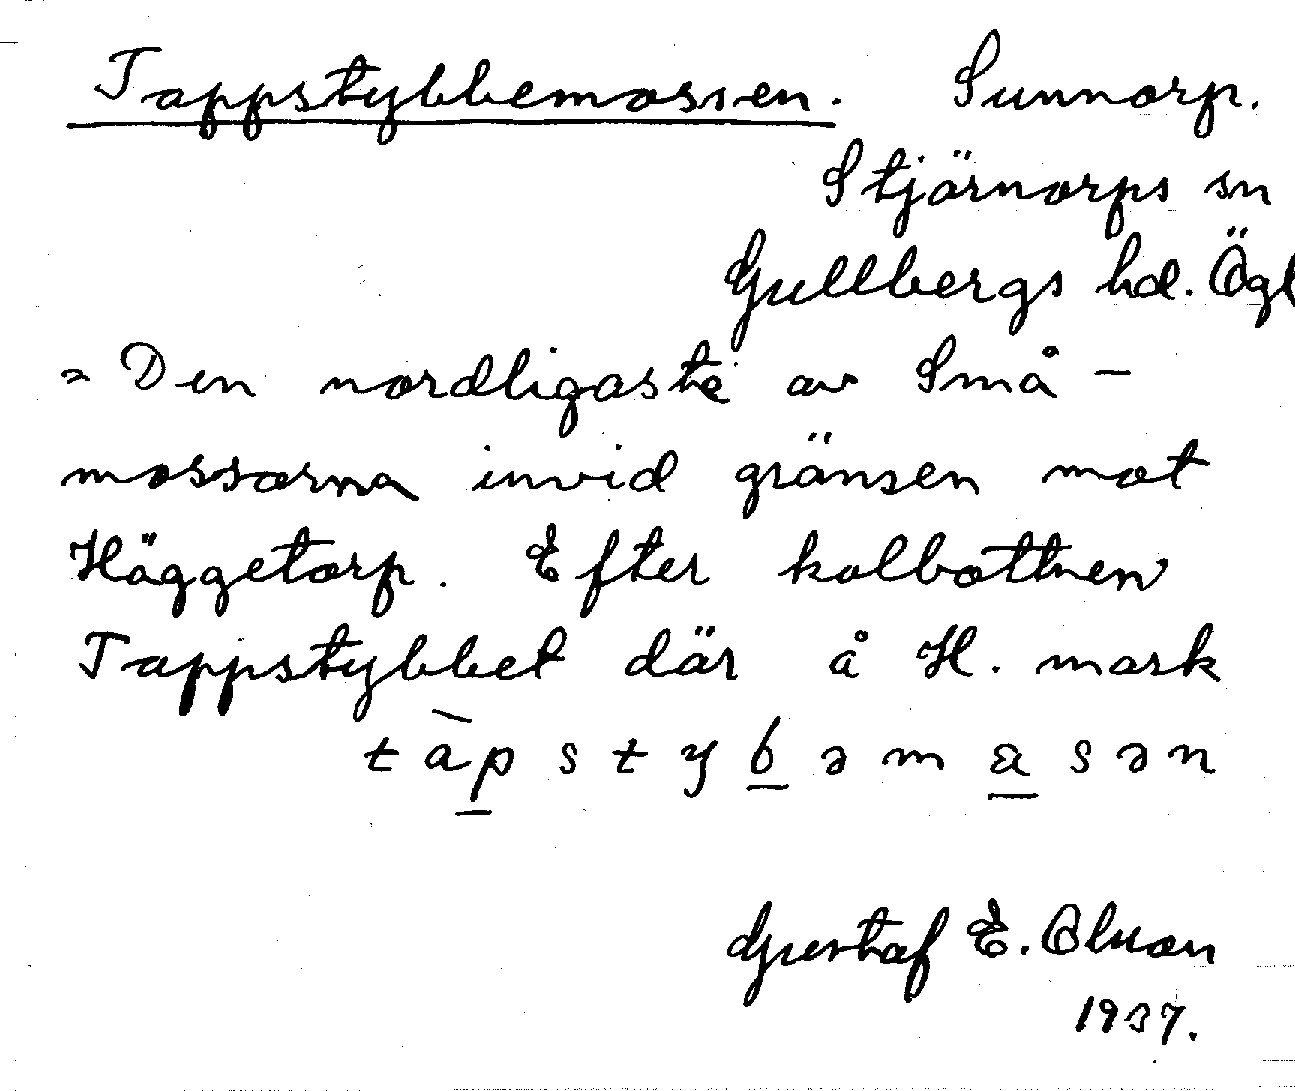 Tappstybbemossen. Sunnorp.
Stjärnorps sn
Gullbergs hd. Ögl
= Den nordligaste av Små-
mossarna invid gränsen mot
Häggetorp. Efter kolbottnen
Tappstybbet där å H. mark
tàp̲styb̲əma̲sən
Gustaf E. Olson
1937.